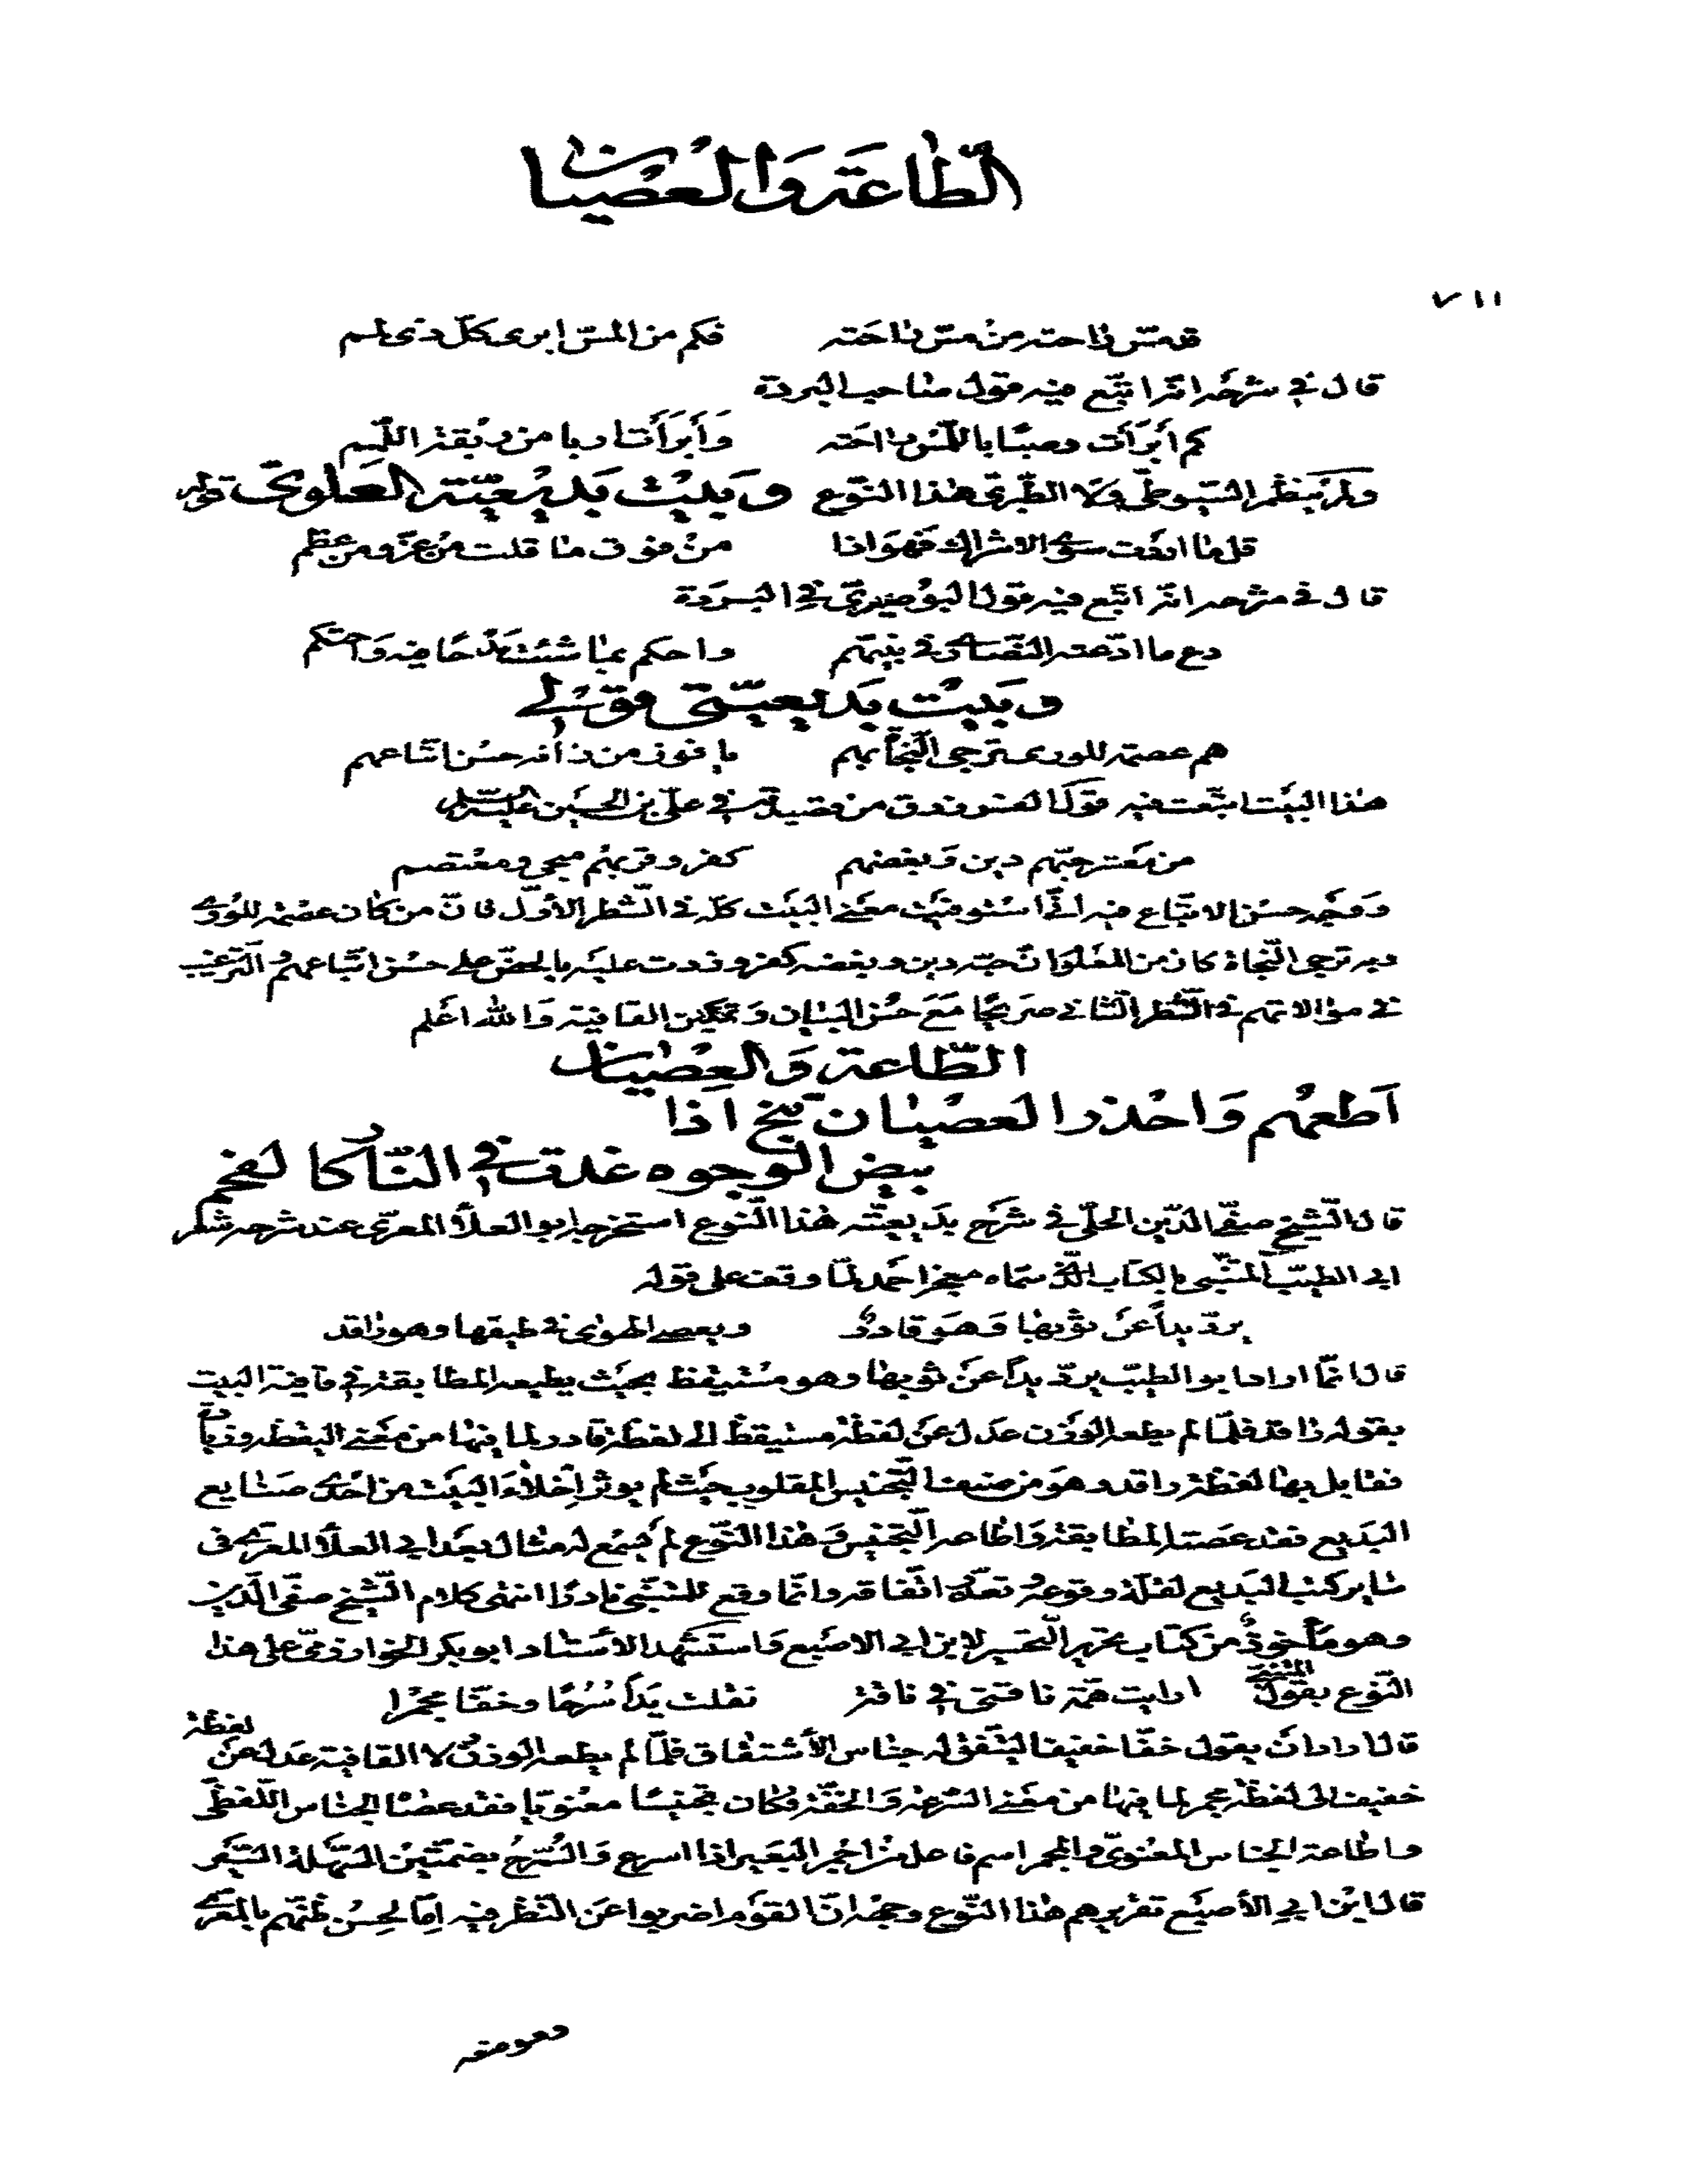 الطّاعَة وَالعُصيان
٧١١
قد مسّ راحته من مسّ راحَته فكم من المسّ ابرى كلّ ذى لمم
قال فى شرحَه انّه اتّبع فيه قول صاحب البردة
كم أبرَأت وصبًا باللّمس راحَته وَأبرَأت اربا من ربقة اللّمم
ولم ينظم السّيوطىّ ولا الطّبرىّ هذا النّوع وبَيت بَديعيّته العَلوىّ قوله
قل ما اردت سوى الاشراك فهوَ اذا من فوق ما قلت من عزّ ومن عظم
قال فى شرحه انّه اتّبع فيه قول البوصيرىّ فى البردة
دع ما ادّعته النّصارى فى نبيّهم واحكم بما شئت مَدحًا فيه وَاحتكم
وبَيت بَديعيّتى قولى
هم عصمة للورى ترجى النّجاة بهم يا فوز من زانه حسُن اتّباعهم
هذا البَيت اتّبعت فيه قول الفرزدق من قصيدته فى علىّ بن الحسَين عليه السّلام
من مَعشر حبّهم دين وَبغضهم كفر وقربهم منجى ومعْتصم
وَوَجه حسُن الاتّباع فيه انّى استوفيت معنى البَيت كلّه فى الشّطر الأوّل فانّ من كان عصمة للورى
وبه ترجى النّجاة كان من المعْلوم انّ حبّه دين وبغضه كفر وزدت عليَه بالحضّ على حسُن اتّباعهم والترغيب
فى موالاتهم فى الشّطر الثّانى صريحًا مَعَ حسُن البَيان وَتمكين القافية وَالله اعْلم
الطّاعة وَالعِصيان
اَطعهُم وَاحْذر العصْيان تنج اذا
بيض الوجوه غدت فى النّار كالفحم
قال الشّيخ صفىّ الدّين الحلّى فى شرَح بَديعيّته هذا النّوع استخرجه ابو العلآء المعرّى عند شرحه شعر
ابى الطيّب المتنبّى بالكتاب الّذى سمّاه معجز احمد لمّا وقف على قوله
يردّ يداً عَن ثوبها وَهوَ قادر ويعصى الهوى فى طيفها وهو راقد
قال انّما اراد ابو الطيّب يردّ يداً عَن ثوبها وهو مستيقظ بحيَث يطيعه المطابقة فى قافية البيت
بقوله راقد فلمّا لم يطعه الوَزن عدل عَن لفظة مستيقظ الى لفظة قادر لما فيها من معْنى اليقظة وزيادة
فقابل بها لفظة راقد وهوَ من صنف التّجنيس المقلوب حيَث لم يوثر اِخلآء البَيت من احْدى صَنايع
البَديع فقد عصته المطابقة وَاطاعه التّجنيس وَهذا النّوع لم يسْمع له مثال بعَد ابى العلآء المعرّى فى
ساير كتب البَديع لقلّة وقوعه وتعذّر اتّفاقه وانّما وقع للمتنبّى نادرًا انتهى كلام الشّيخ صفىّ الدّين
وهو مأخوذ من كتاب تحرير التّحبير لابن ابى الاصبَع وَاستشهد الأستاد ابو بكر الخوارزمىّ على هذا
النّوع بقول المتنبّى ارايت همّة ناقتى فى ناقة نقلت يَداً سُرُحًا وخفّا مجمرا
قال اراد ان يقول خفّا خفيفا ليتّفق له جناس الأشتقاق فلمّا لم يطعه الوزن ولا القافية عَدل عَن لفظة
خفيف الى لفظة مجمر لما فيها من معْنى السّرعة وَالخفّة فكان تجنيسًا معنويّا فقد عصاه الجناس اللّفظىّ
واطاعة الجناس المعْنوىّ والمجمر اسم فاعل من اجْمر البَعير اذا اسرع وَالسُّرُح بضمّتين السّهلة السّيَر
قال ابْن ابى الأصبَع تقريرهم هذا النّوع وحجّة انّ القوَم اضربوا عَن النّظر فيه اِمّا لحسُن ظنّهم بالمعرّى